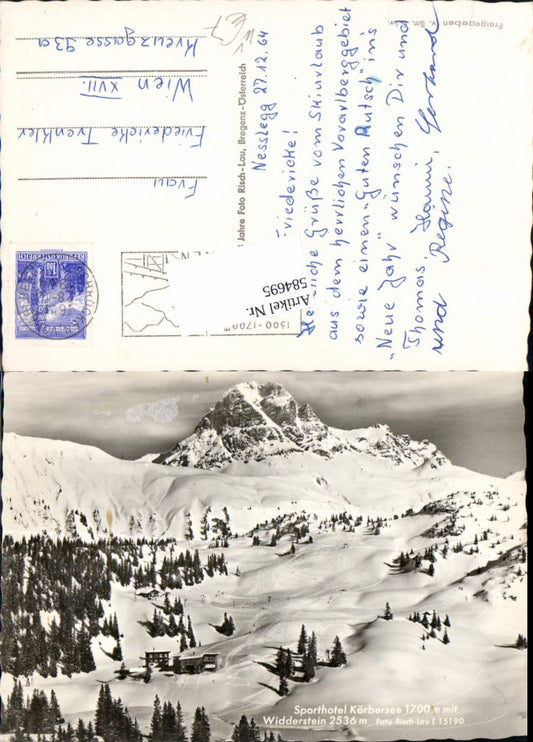 Freigegeben v. Bm.
Nesslegg 27.12.64
Friedericke!
Herzliche Grüße vom Skiurlaub
aus dem herrlichen Vorarlberggebiet
sowie einen "Guten Rutsch" ins
"Neue Jahr" wünschen Dir und
Thomas, Hanni, Gerhard
und Regine.
Jahre Foto Risch-Lau, Bregenz-Österreich
Frau
Friedericke Trenkler
Wien XVII.
Kreuzgasse 93a
REPUBLIK ÖSTERREICH
1500-1700m
Artikel Nr.
584695
Sporthotel Körbersee 1700 m mit
Widderstein 2536 m Foto Risch-Lau L 15190